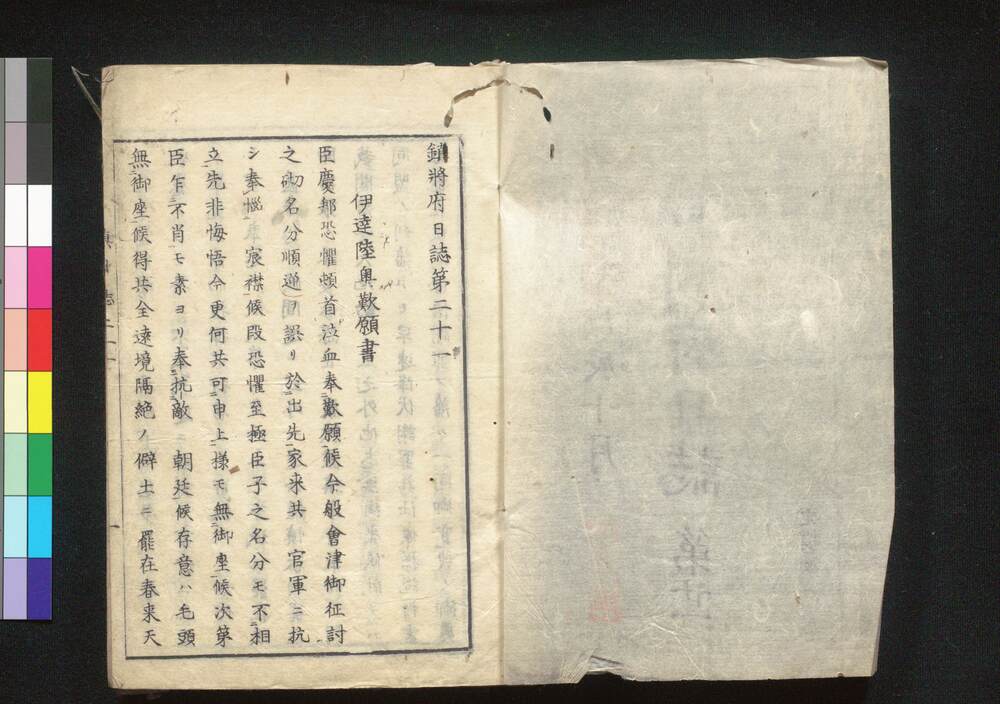 鎮將府日誌第二十一
伊達陸奥歎願書
臣慶邦恐懼頓首泣血奉歎願候今般會津御征討
之砌名分順逆ヲ誤リ於出先家来共官軍ニ抗
シ奉悩宸襟候段恐懼至極臣子之名分モ不相
立先非悔悟今更何共可申上様モ無御座候次第
臣乍不肖モ素ヨリ奉抗敵朝廷候存意ハ毛頭
無御座候得共全遠境隔絶ノ僻土ニ罷在春来天